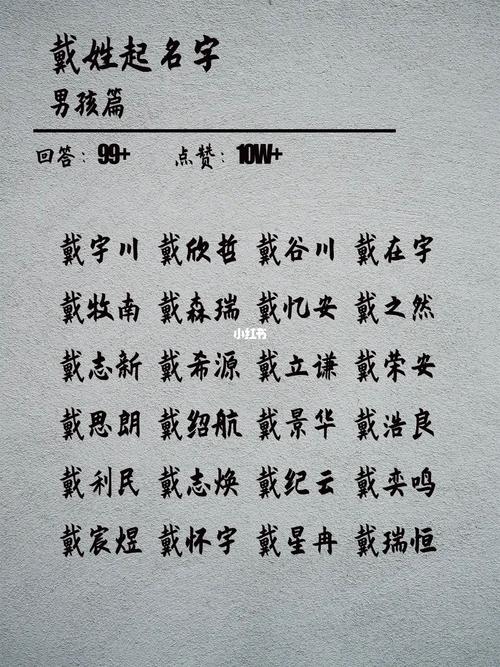 戴姓起名字
男孩篇
回答：99+ 点赞：10W+
戴宇川 戴欣哲 戴谷川 戴在宇
戴牧南 戴森瑞 戴忆安 戴之然
小红书
戴志新 戴希源 戴立谦 戴荣安
戴思朗 戴绍航 戴景华 戴浩良
戴利民 戴志焕 戴纪云 戴奕鸣
戴宸煜 戴怀宇 戴星冉 戴瑞恒